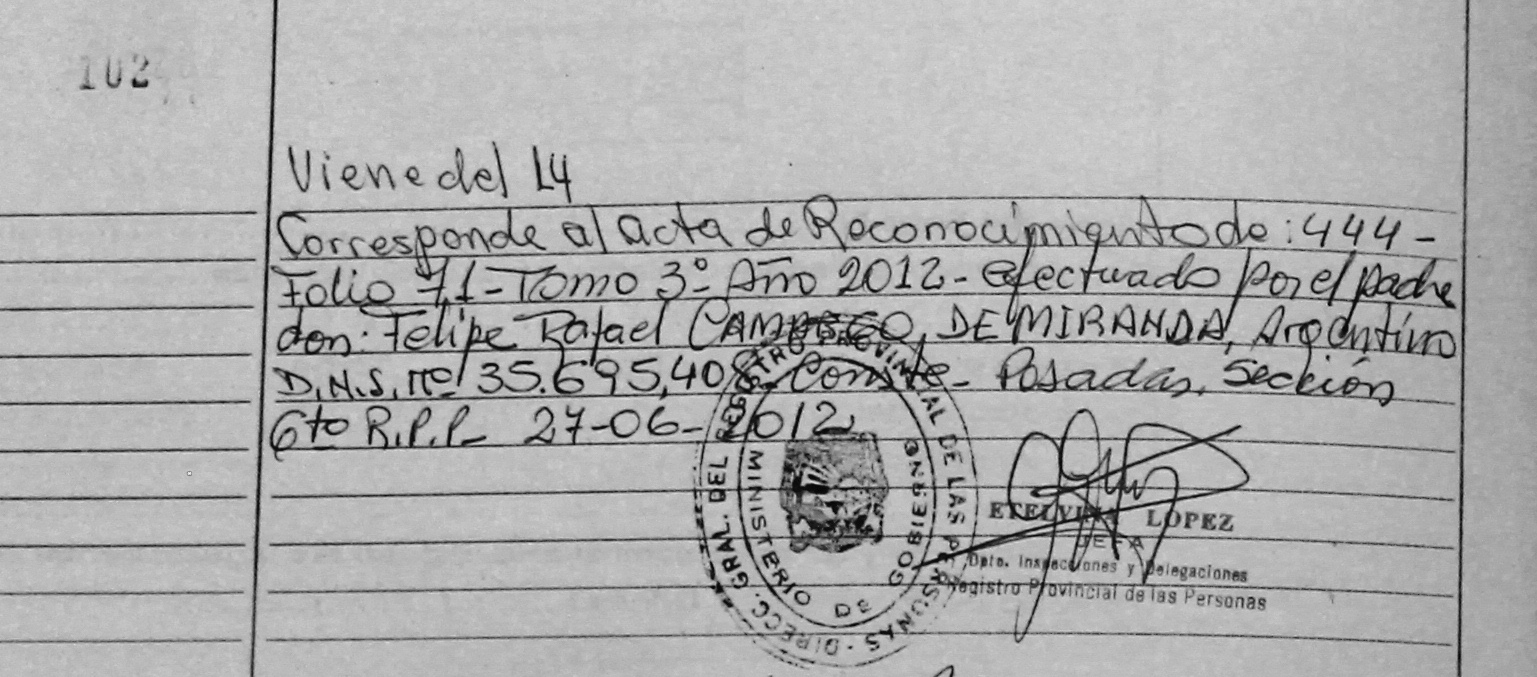 102
Viene del L4
Corresponde al acta de Reconocimiento de: 444-
Folio 71-Tomo 3º Año 2012- efectuado por el padre
don: Felipe Rafael DE MIRANDA, Argentino
D.N.I. nº 35.695,408- Conste- Posadas, Sección
6to R.P.P- 27-06-2012
DIRECC. GRAL. DEL REGISTRO PROVINCIAL DE LAS PERSONAS
MINISTERIO DE GOBIERNO
LOPEZ
JEFA
Dpto. Inspecciones y Delegaciones
Registro Provincial de las Personas